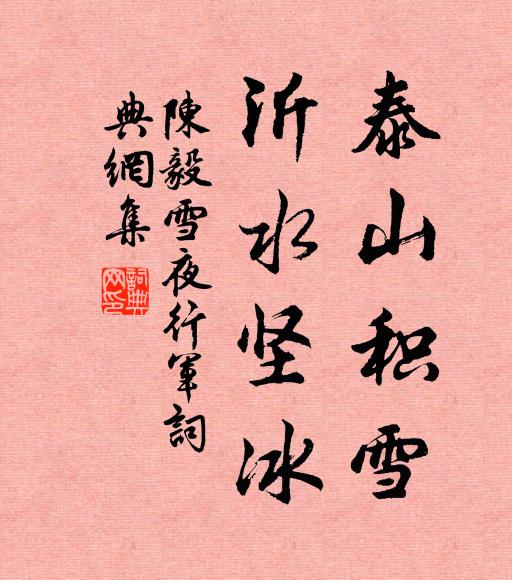 泰山积雪
沂水坚冰
陳毅雪夜行軍詞
典網集
詞典网印